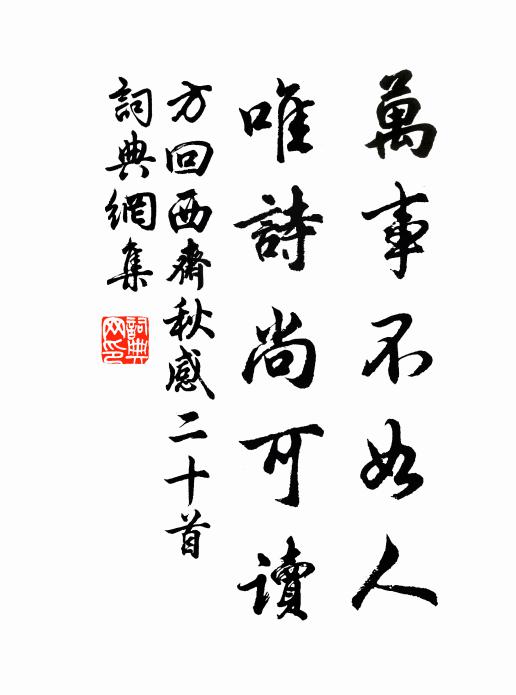 萬事不如人
唯詩尚可讀
方回西齋秋感二十首
詞典網集
詞典网印